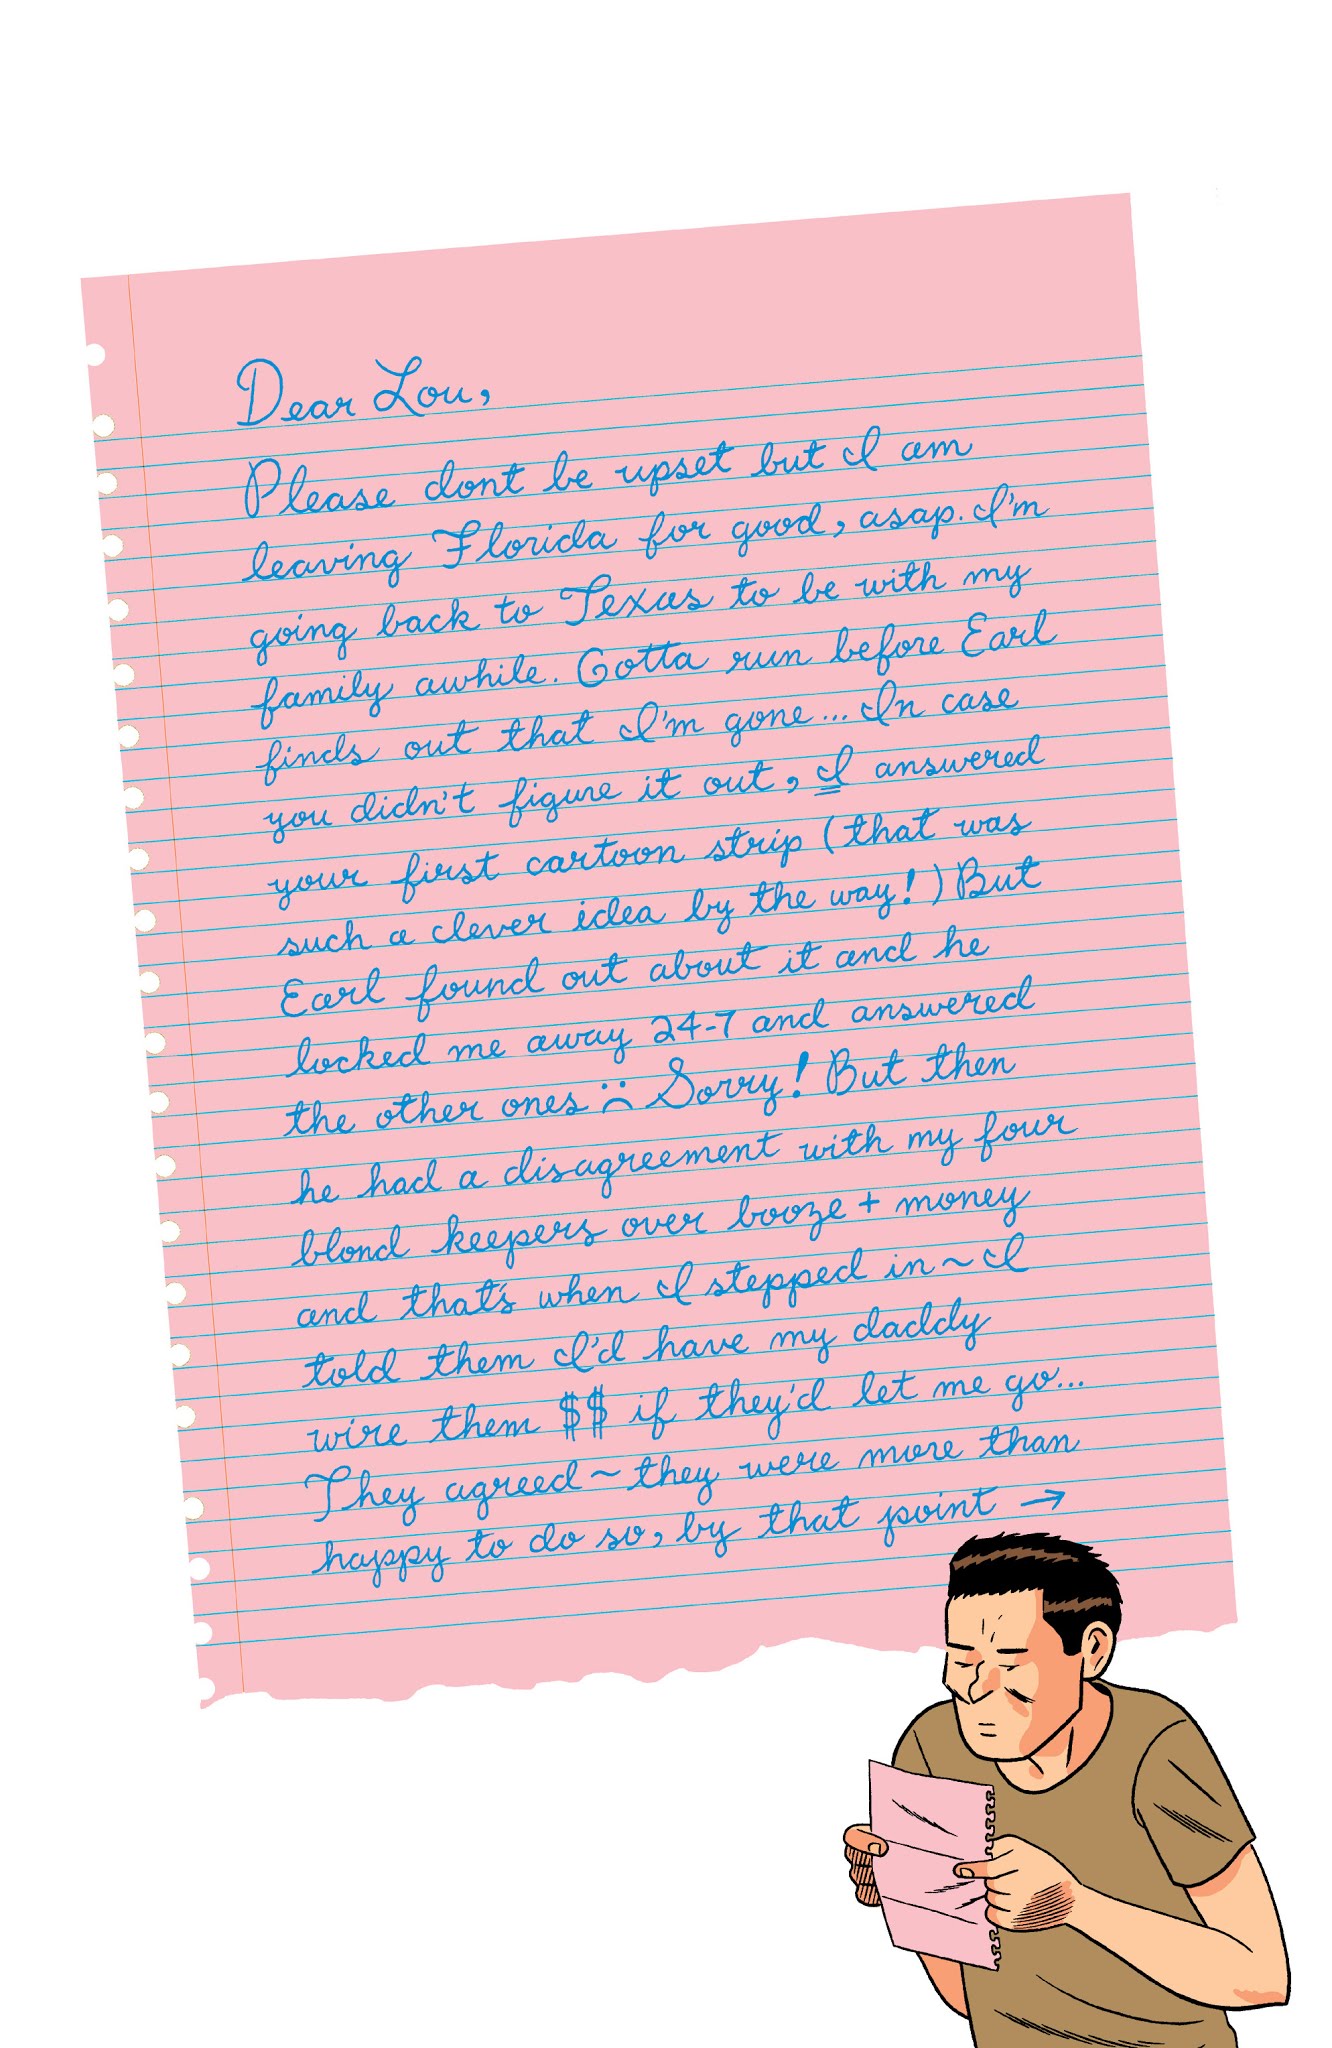 Dear Lou,
Please dont be upset but I am
leaving Florida for good, asap. I'm
going back to Texas to be with my
family awhile. Gotta run before Earl
finds out that I'm gone... In case
you didn't figure it out, I answered
your first cartoon strip (that was
such a clever idea by the way!) But
Earl found out about it and he
locked me away 24-7 and answered
the other ones :( Sorry! But then
he had a disagreement with my four
blond keepers over booze + money
and that's when I stepped in ~ I
told them I'd have my daddy
wire them $$ if they'd let me go...
They agreed ~ they were more than
happy to do so, by that point →